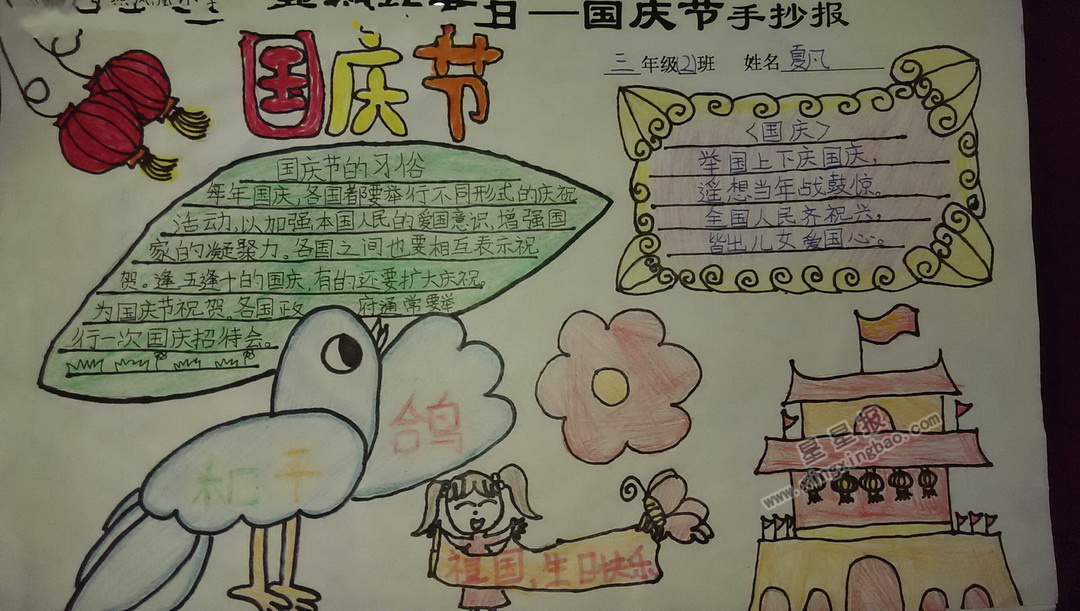 日—国庆节手抄报
三 年级(2)班 姓名 夏凡
国庆节
国庆节的习俗
每年国庆,各国都要举行不同形式的庆祝
活动,以加强本国人民的爱国意识,增强国
家的凝聚力。各国之间也要相互表示祝
贺。逢五逢十的国庆,有的还要扩大庆祝。
为国庆节祝贺,各国政府通常要举
行一次国庆招待会。
〈国庆〉
举国上下庆国庆,
遥想当年战鼓惊。
全国人民齐祝兴,
皆出儿女爱国心。
和平
鸽
祖国,生日快乐
星星报
www.xingxingbao.com